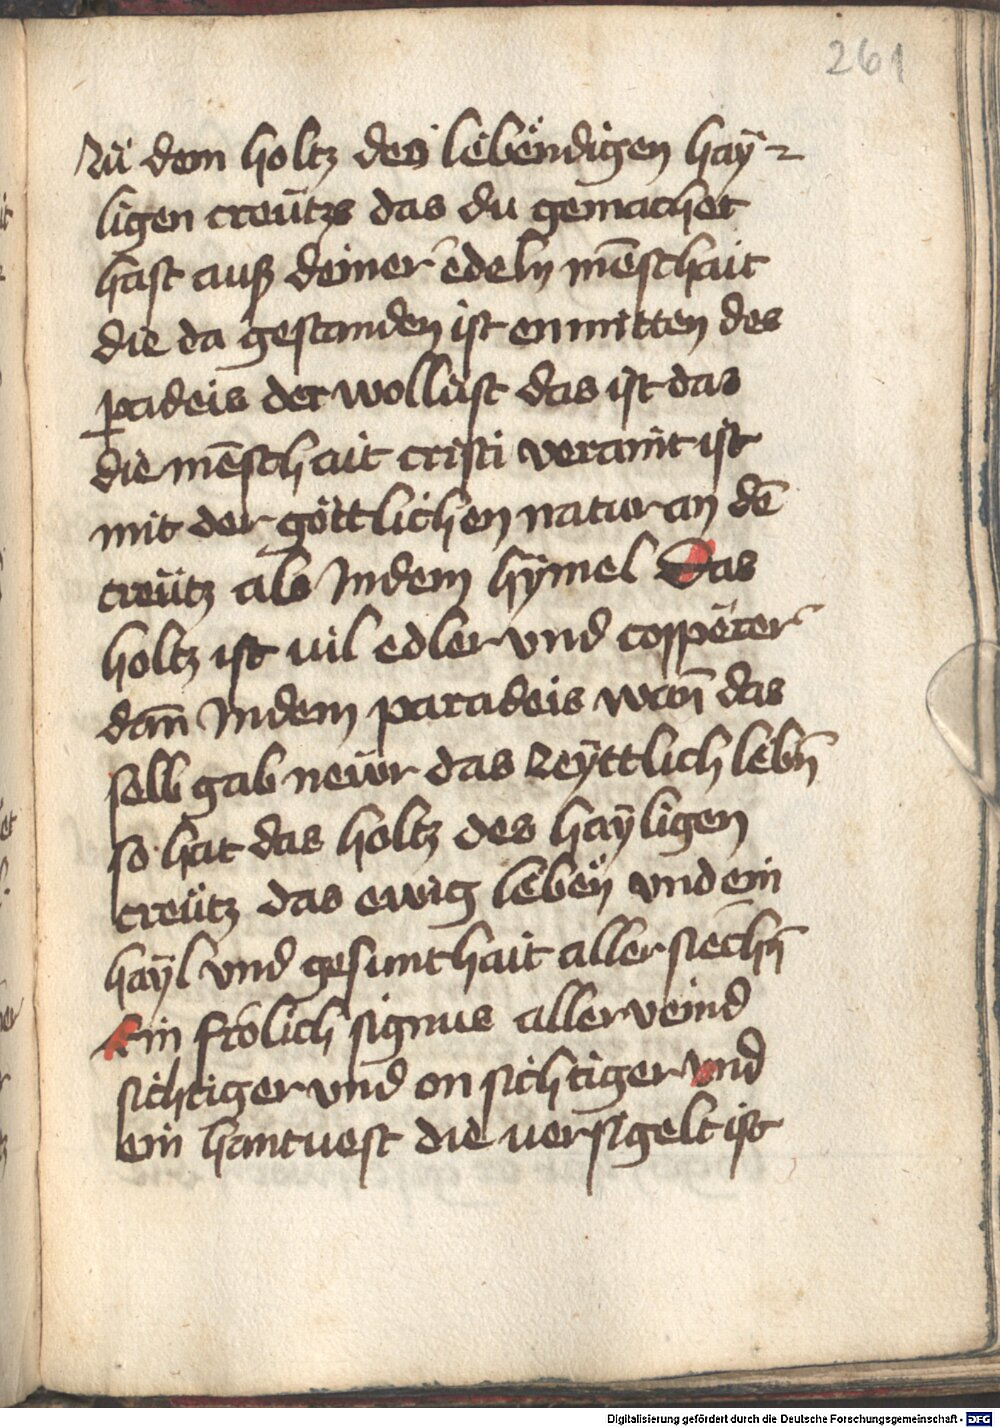 261
zů dem holtz des lebendigen haÿ-
ligen creütz das du gemachet
hast auß deiner edeln mēschait
die da gestanden ist enmitten des
ꝑadeis der wollust das ist das
die mēschait cristi veraint ist
mit der göttlichen natur an dē
creütz als Jndem hÿmel Das
holtz ist uil edler vnd
dan̄ Jndem paradeis wan̄ das
selb gab neẅr das zeÿttlich lebn̄
so hat das holtz des haÿligen
creütz das ewig leben vnd ein
haÿl vnd gesunthait aller siechn̄
Ein frölich signus aller veind
sichtiger vnd onsichtiger vnd
ein hantuest die uersigelt ist
Digitalisierung gefördert durch die Deutsche Forschungsgemeinschaft - DFG